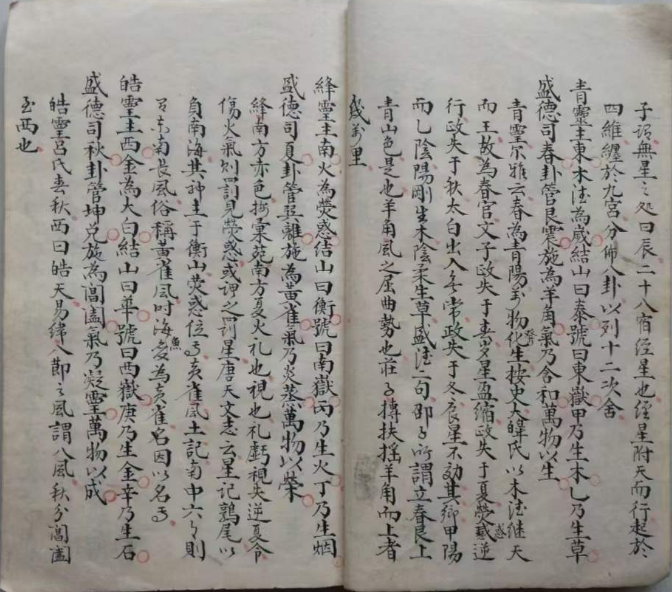 子謂無星之処曰辰二十八宿経星也経星附天而行起於
四維纏於九宮分佈八卦以列十二次舍
青靈主東木法為歲結山曰泰號曰東嶽甲乃生木乙乃生草
盛德司春卦管艮震施為羊角氣乃合和萬物以生
青靈尔雅云春為青陽萬物發生按史大皡氏以木法继天
而王故為春官天文子政失于春歲星盈縮政失于夏熒惑逆
行政失于秋太白出入無常政失于冬辰星不効其鄉甲陽
而乙陰陽剛生木陰柔生草盛法一句即所謂立春艮上
青山色是也羊角風之屈曲勢也莊子摶扶摇羊角而上者
幾萬里
絳靈主南火為熒惑结山曰衡號曰南嶽丙乃生火丁乃生烟
盛德司夏卦管巽離施為黃雀氣乃炎蒸萬物以榮
絳南方赤色南方夏火礼也視也礼虧視失逆夏令
傷火氣則罰見熒惑或神之罰星唐天文志云星記鶉尾以
負南海其神主于衡山熒惑位黃雀風土記南中六月則
有東南長風俗稱黃雀風时海魚变為黃雀名因以名
皓靈主西金為太白結山曰華號曰西嶽庚乃生金辛乃生石
盛德司秋卦管坤兑施為閶闔氣乃凝霊萬物以成
皓靈吕氏春秋西曰皓天易緯八節之風謂八風秋分閶闔
至西也